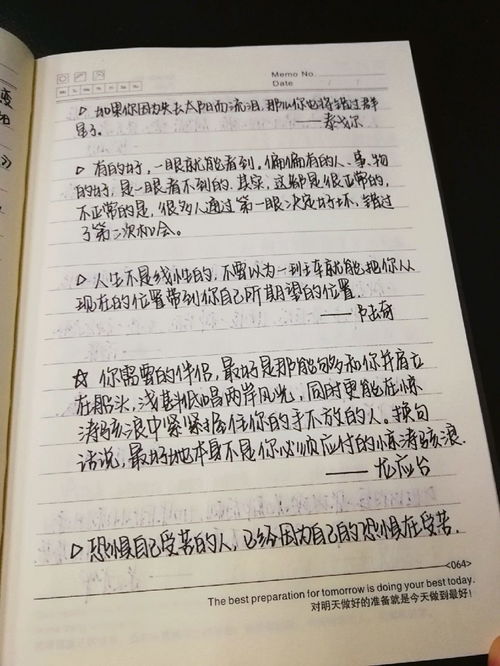 Memo No.
Date / /
▷ 如果你因为失去太阳而流泪,那么你也将错过群
星了. ——泰戈尔
▷ 有的好,一眼就能看到,偏偏有的人、事、物
的好,是一眼看不到的.其实,这都是很正常的,
不正常的是,很多人通过第一眼决定好坏,错过
了第二次机会。
▷ 人生不是线性的,不要以为一列车就能把你从
现在的位置带到你自己所期望的位置.
☆ 你需要的伴侣,最好是那能够和你并肩立
在船头,浅斟低唱两岸风光,同时更能在惊
涛骇浪中紧紧握住你的手不放的人。换句
话说,最好她本身不是你必须应付的惊涛骇浪.
——龙应台
▷ 恐惧自己受苦的人,已经因为自己的恐惧在受苦.
<064>
The best preparation for tomorrow is doing your best today.
对明天做好的准备就是今天做到最好!